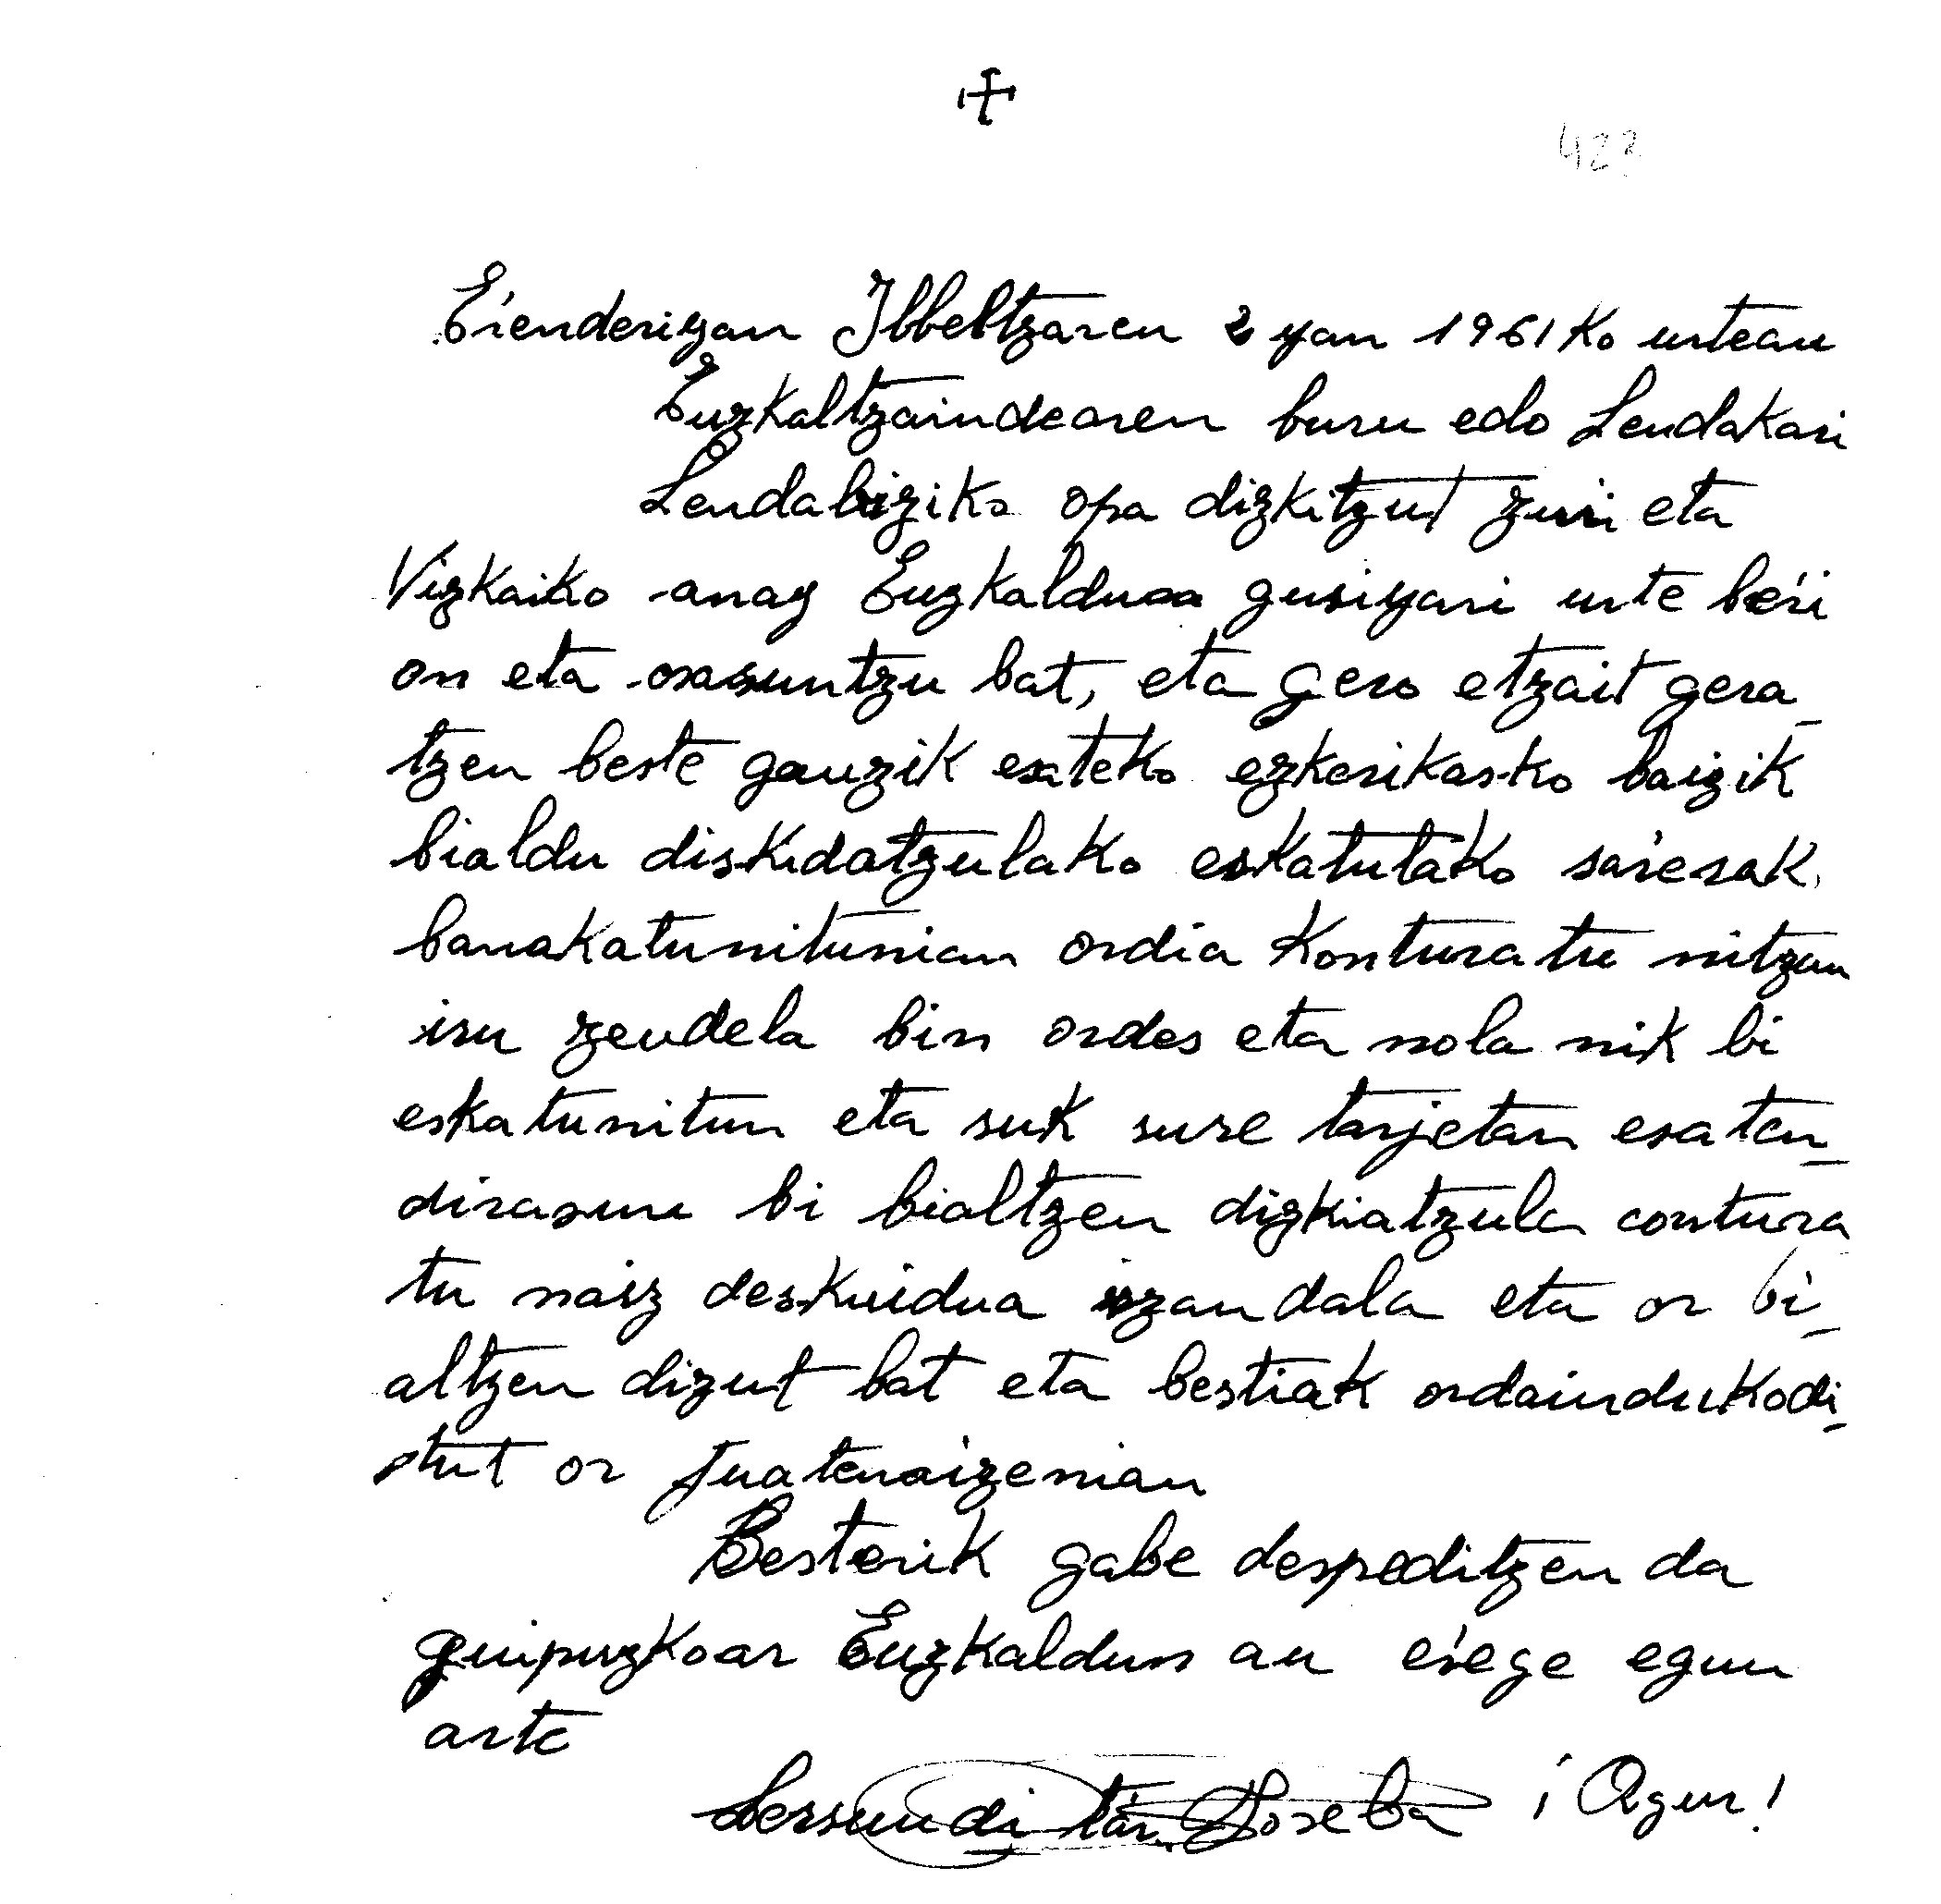 ✝
422
Eŕenderiyan Ilbeltzaren 2 yan 1961 Ko urtean
Euzkaltzaindearen buru edo Lendakari
Lendabiziko opa dizkitzut zuri eta
Vizkaiko anay Euzkaldun gusiyari urte beŕi
on eta osasuntzu bat, eta gero etzait gera_
tzen beste gauzik esateko ezkerikasko baizik
bialdu diskidatzulako eskatutako saŕerak,
banakatunitunian ordia Konturatu nitzan
iru zeudela bin ordes eta nola nik bi
eskatunitun eta suk sure tarjetan esaten_
dirasun bi bialtzen dizkiatzula contura
tu naiz deskuidua izandala eta or bi_
altzen dizut bat eta bestiak ordaindukodi_
stut or juatenaizenian
Besterik gabe despeditzen da
guipuzkoar Euzkaldun au eŕege egun
arte
Lersundi táŕ Joseba ¡ Agur!